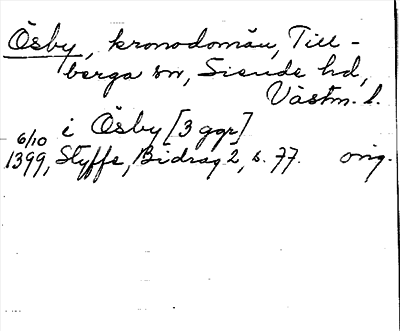 Ösby, kronodomän, Till-
berga sn, Siende hd,
Västm. l.
i Ösby [3 ggr]
6/10
1399, Styffe, Bidrag 2, s. 77. orig.